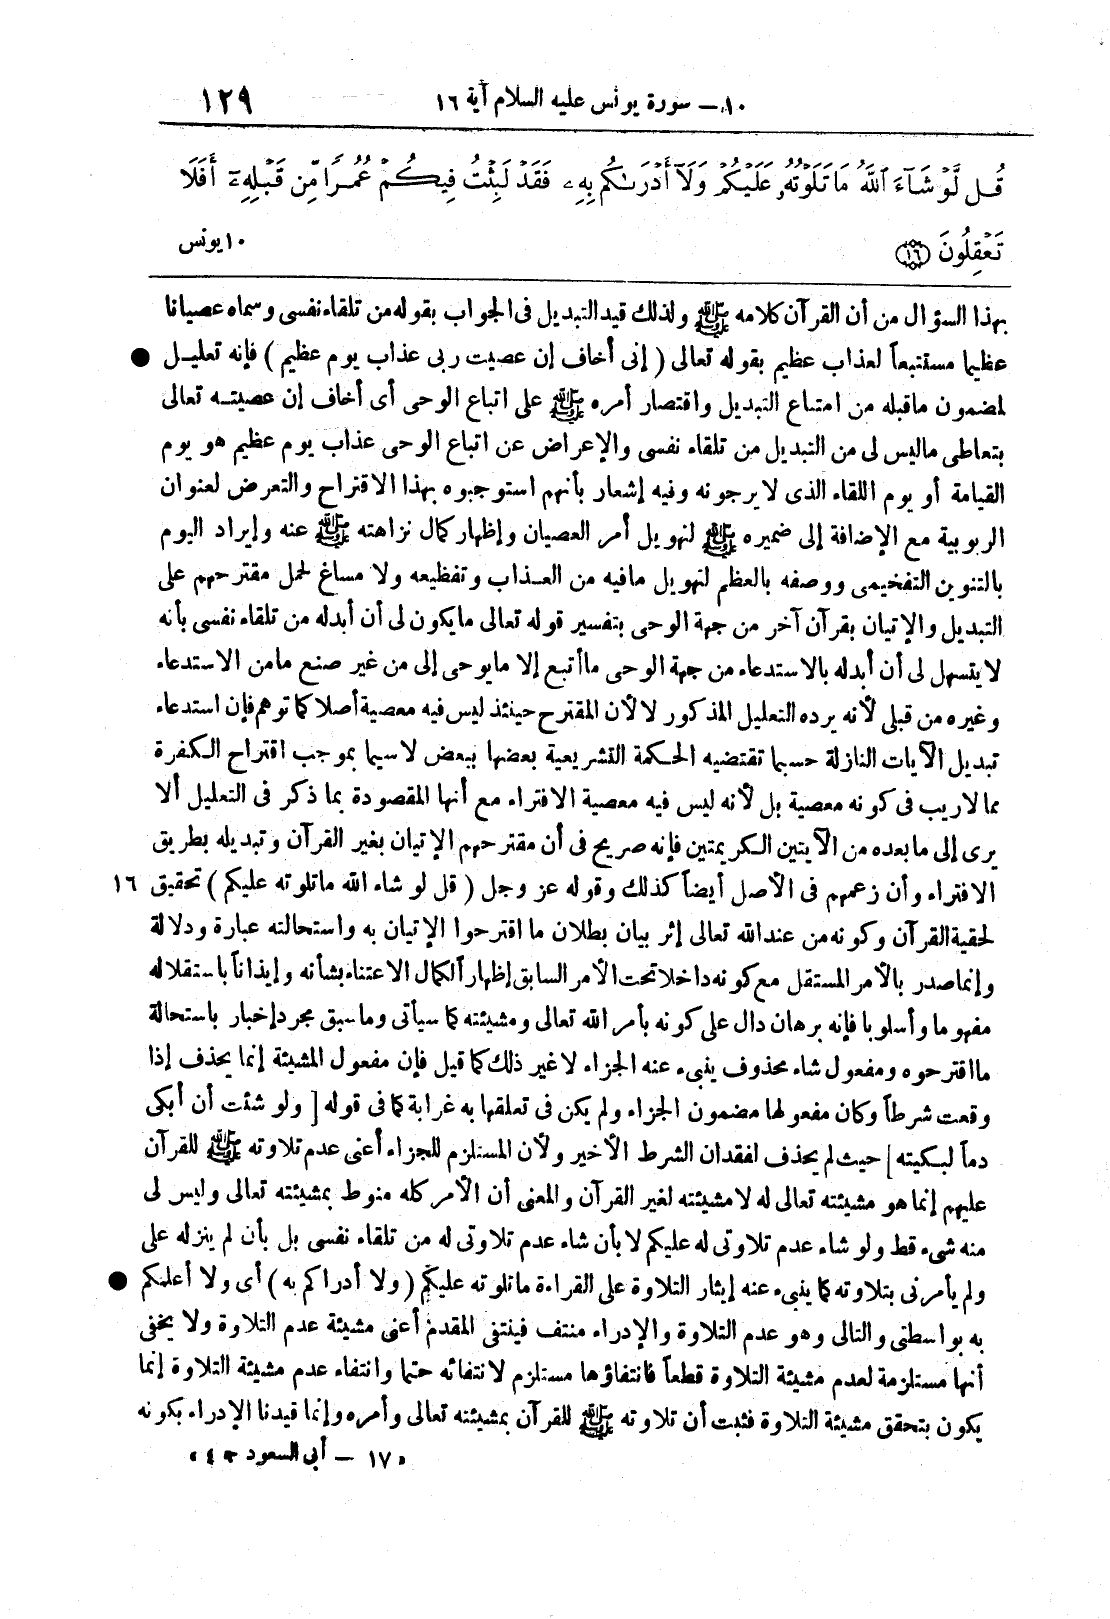 ١٠ — سورة يونس عليه السلام آية ١٦
١٢٩
قُل لَّوْ شَآءَ ٱللَّهُ مَا تَلَوْتُهُۥ عَلَيْكُمْ وَلَآ أَدْرَىٰكُم بِهِۦ فَقَدْ لَبِثْتُ فِيكُمْ عُمُرًا مِّن قَبْلِهِۦٓ أَفَلَا
تَعْقِلُونَ ١٦
١٠ يونس
بهذا السؤال من أن القرآن كلامه ﷺ ولذلك قيد التبديل فى الجواب بقوله من تلقاء نفسى وسماه عصيانا
عظيما مستتبعاً لعذاب عظيم بقوله تعالى ( إنى أخاف إن عصيت ربى عذاب يوم عظيم ) فإنه تعليل ●
لمضمون ماقبله من امتناع التبديل واقتصار أمره ﷺ على اتباع الوحى أى أخاف إن عصيته تعالى
بتعاطى ماليس لى من التبديل من تلقاء نفسى والإعراض عن اتباع الوحى عذاب يوم عظيم هو يوم
القيامة أو يوم اللقاء الذى لايرجونه وفيه إشعار بأنهم استوجبوه بهذا الاقتراح والتعرض لعنوان
الربوبية مع الإضافة إلى ضميره ﷺ لتهويل أمر العصيان وإظهار كمال نزاهته ﷺ عنه وإيراد اليوم
بالتنوين التفخيمى ووصفه بالعظم لتهويل مافيه من العذاب وتفظيعه ولا مساغ لحمل مقترحهم على
التبديل والإتيان بقرآن آخر من جهة الوحى بتفسير قوله تعالى مايكون لى أن أبدله من تلقاء نفسى بأنه
لايتسهل لى أن أبدله بالاستدعاء من جهة الوحى ماأتبع إلا مايوحى إلى من غير صنع مامن الاستدعاء
وغيره من قبلى لأنه يرده التعليل المذكور لا لأن المقترح حينئذ ليس فيه معصية أصلا كما توهم فإن استدعاء
تبديل الآيات النازلة حسبما تقتضيه الحكمة التشريعية بعضها ببعض لاسيما بموجب اقتراح الكفرة
مما لاريب فى كونه معصية بل لأنه ليس فيه معصية الافتراء مع أنها المقصودة بما ذكر فى التعليل ألا
يرى إلى مابعده من الآيتين الكريمتين فإنه صريح فى أن مقترحهم الإتيان بغير القرآن وتبديله بطريق
الافتراء وأن زعمهم فى الأصل أيضاً كذلك وقوله عز وجل ( قل لو شاء الله ماتلوته عليكم ) تحقيق ١٦
لحقية القرآن وكونه من عندالله تعالى إثر بيان بطلان ما اقترحوا الإتيان به واستحالته عبارة ودلالة
وإنما صدر بالأمر المستقل مع كونه داخلا تحت الأمر السابق إظهاراً لكمال الاعتناء بشأنه وإيذاناً باستقلاله
مفهوما وأسلوبا فإنه برهان دال على كونه بأمر الله تعالى ومشيئته كما سيأتى وماسبق مجرد إخبار باستحالة
مااقترحوه ومفعول شاء محذوف ينبىء عنه الجزاء لا غير ذلك كما قيل فإن مفعول المشيئة إنما يحذف إذا
وقعت شرطاً وكان مفعولها مضمون الجزاء ولم يكن فى تعلقها به غرابة كما فى قوله [ ولو شئت أن أبكى
دماً لبكيته ] حيث لم يحذف لفقدان الشرط الأخير ولأن المستلزم للجزاء أعنى عدم تلاوته ﷺ للقرآن
عليهم إنما هو مشيئته تعالى له لا مشيئته لغير القرآن والمعنى أن الأمر كله منوط بمشيئته تعالى وليس لى
منه شىء قط ولو شاء عدم تلاوتى له عليكم لا بأن شاء عدم تلاوتى له من تلقاء نفسى بل بأن لم ينزله على
ولم يأمرنى بتلاوته كما ينبىء عنه إيثار التلاوة على القراءة ماتلوته عليكم ( ولا أدراكم به ) أى ولا أعلمكم ●
به بواسطتى والتالى وهو عدم التلاوة والإدراء منتف فينتفى المقدم أعنى مشيئة عدم التلاوة ولا يخفى
أنها مستلزمة لعدم مشيئة التلاوة قطعاً فانتفاؤها مستلزم لانتفائه حتما وانتفاء عدم مشيئة التلاوة إنما
يكون بتحقق مشيئة التلاوة فثبت أن تلاوته ﷺ للقرآن بمشيئته تعالى وأمره وإنما قيدنا الإدراء بكونه
« ١٧ — أبى السعود ج ٤ »